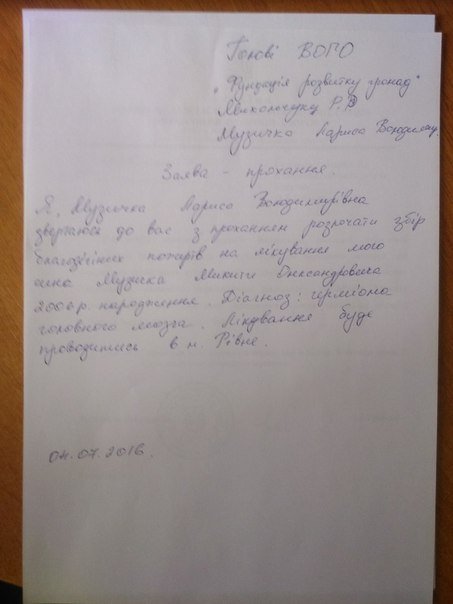 Голові ВОГО
"Фундація розвитку громад"
Р.В
Музичко Лариса Володимир.
Заява - прохання.
Я, Музичка Лариса Володимирівна
звертаюсь до вас з проханням розпочати збір
благодійних пожертв на лікування мого
сина Музика Микити Олександровича
2006 р. народження. Діагноз: гермінома
головного мозга. Лікування буде
проводитись в м. Рівне.
04.07.2016.